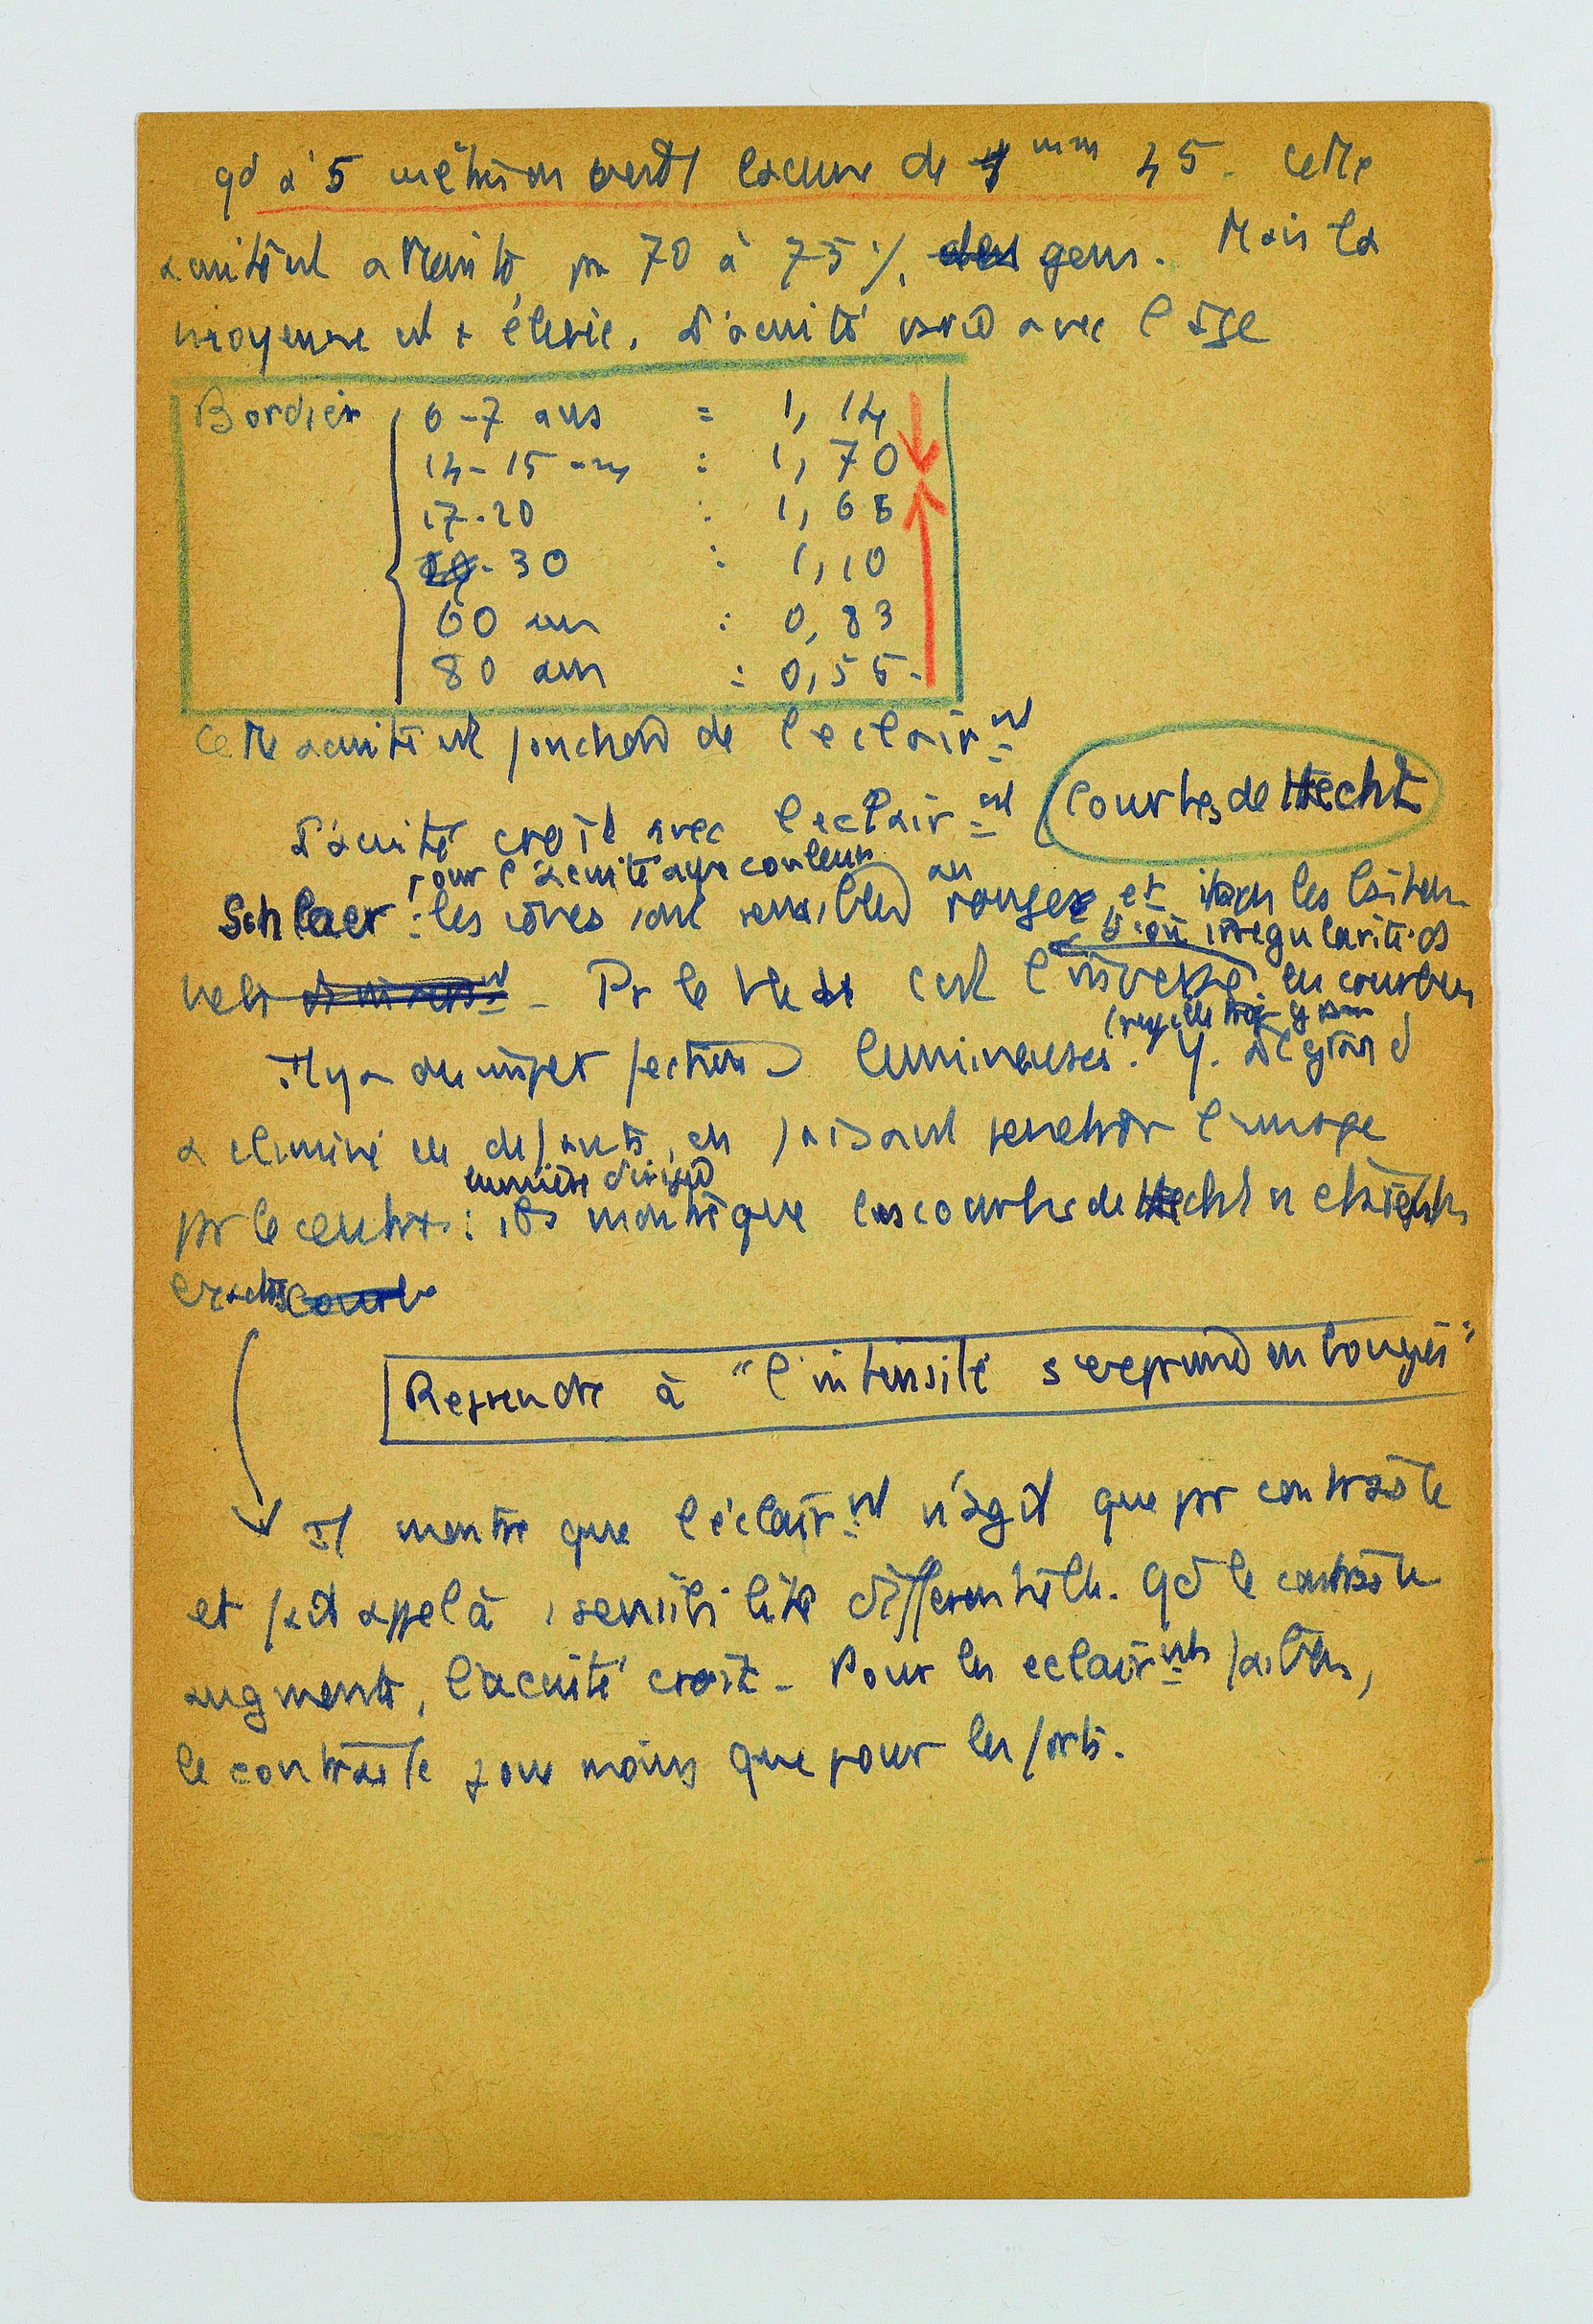 qd à 5 mètres on verdt lacune de 1 mm 45. Cette
acuité est atteinte pr 70 à 75 %, des gens. Mais la
moyenne est + élevée. L'acuité varie avec l'âge
Bordier 6-7 ans = 1,14
14-15 ans : 1,70
17-20 : 1,65
30 : 1,10
60 ans : 0,83
80 ans : 0,55.
Cette acuité est fonction de l'eclairnt
L'acuité croît avec l'eclairnt
Courbes de Hecht
pour l'acuité aux couleurs
Schlaer : les cônes sont sensibles au rouge et les bâton-
d'où irregularité ds
nets - Pr le bleu c'est l'inverse les courbes
Il y a des imperfections lumineuses. Y. Le Grand
a eliminé ces defauts, en faisant penetrer l'image
lumière dirigée
pr le centre : ils montre que les courbes de Hecht n'etaient
exactes courbe
Reprendre à "l'intensité s'exprime en bougies"
Il montre que l'éclairnt n'agit que pr contraste
et fait appel à sensibilité differentielle. Qd le contraste
augmente, l'acuité croît - Pour les eclairnts faibles,
le contraste joue moins que pour les forts.